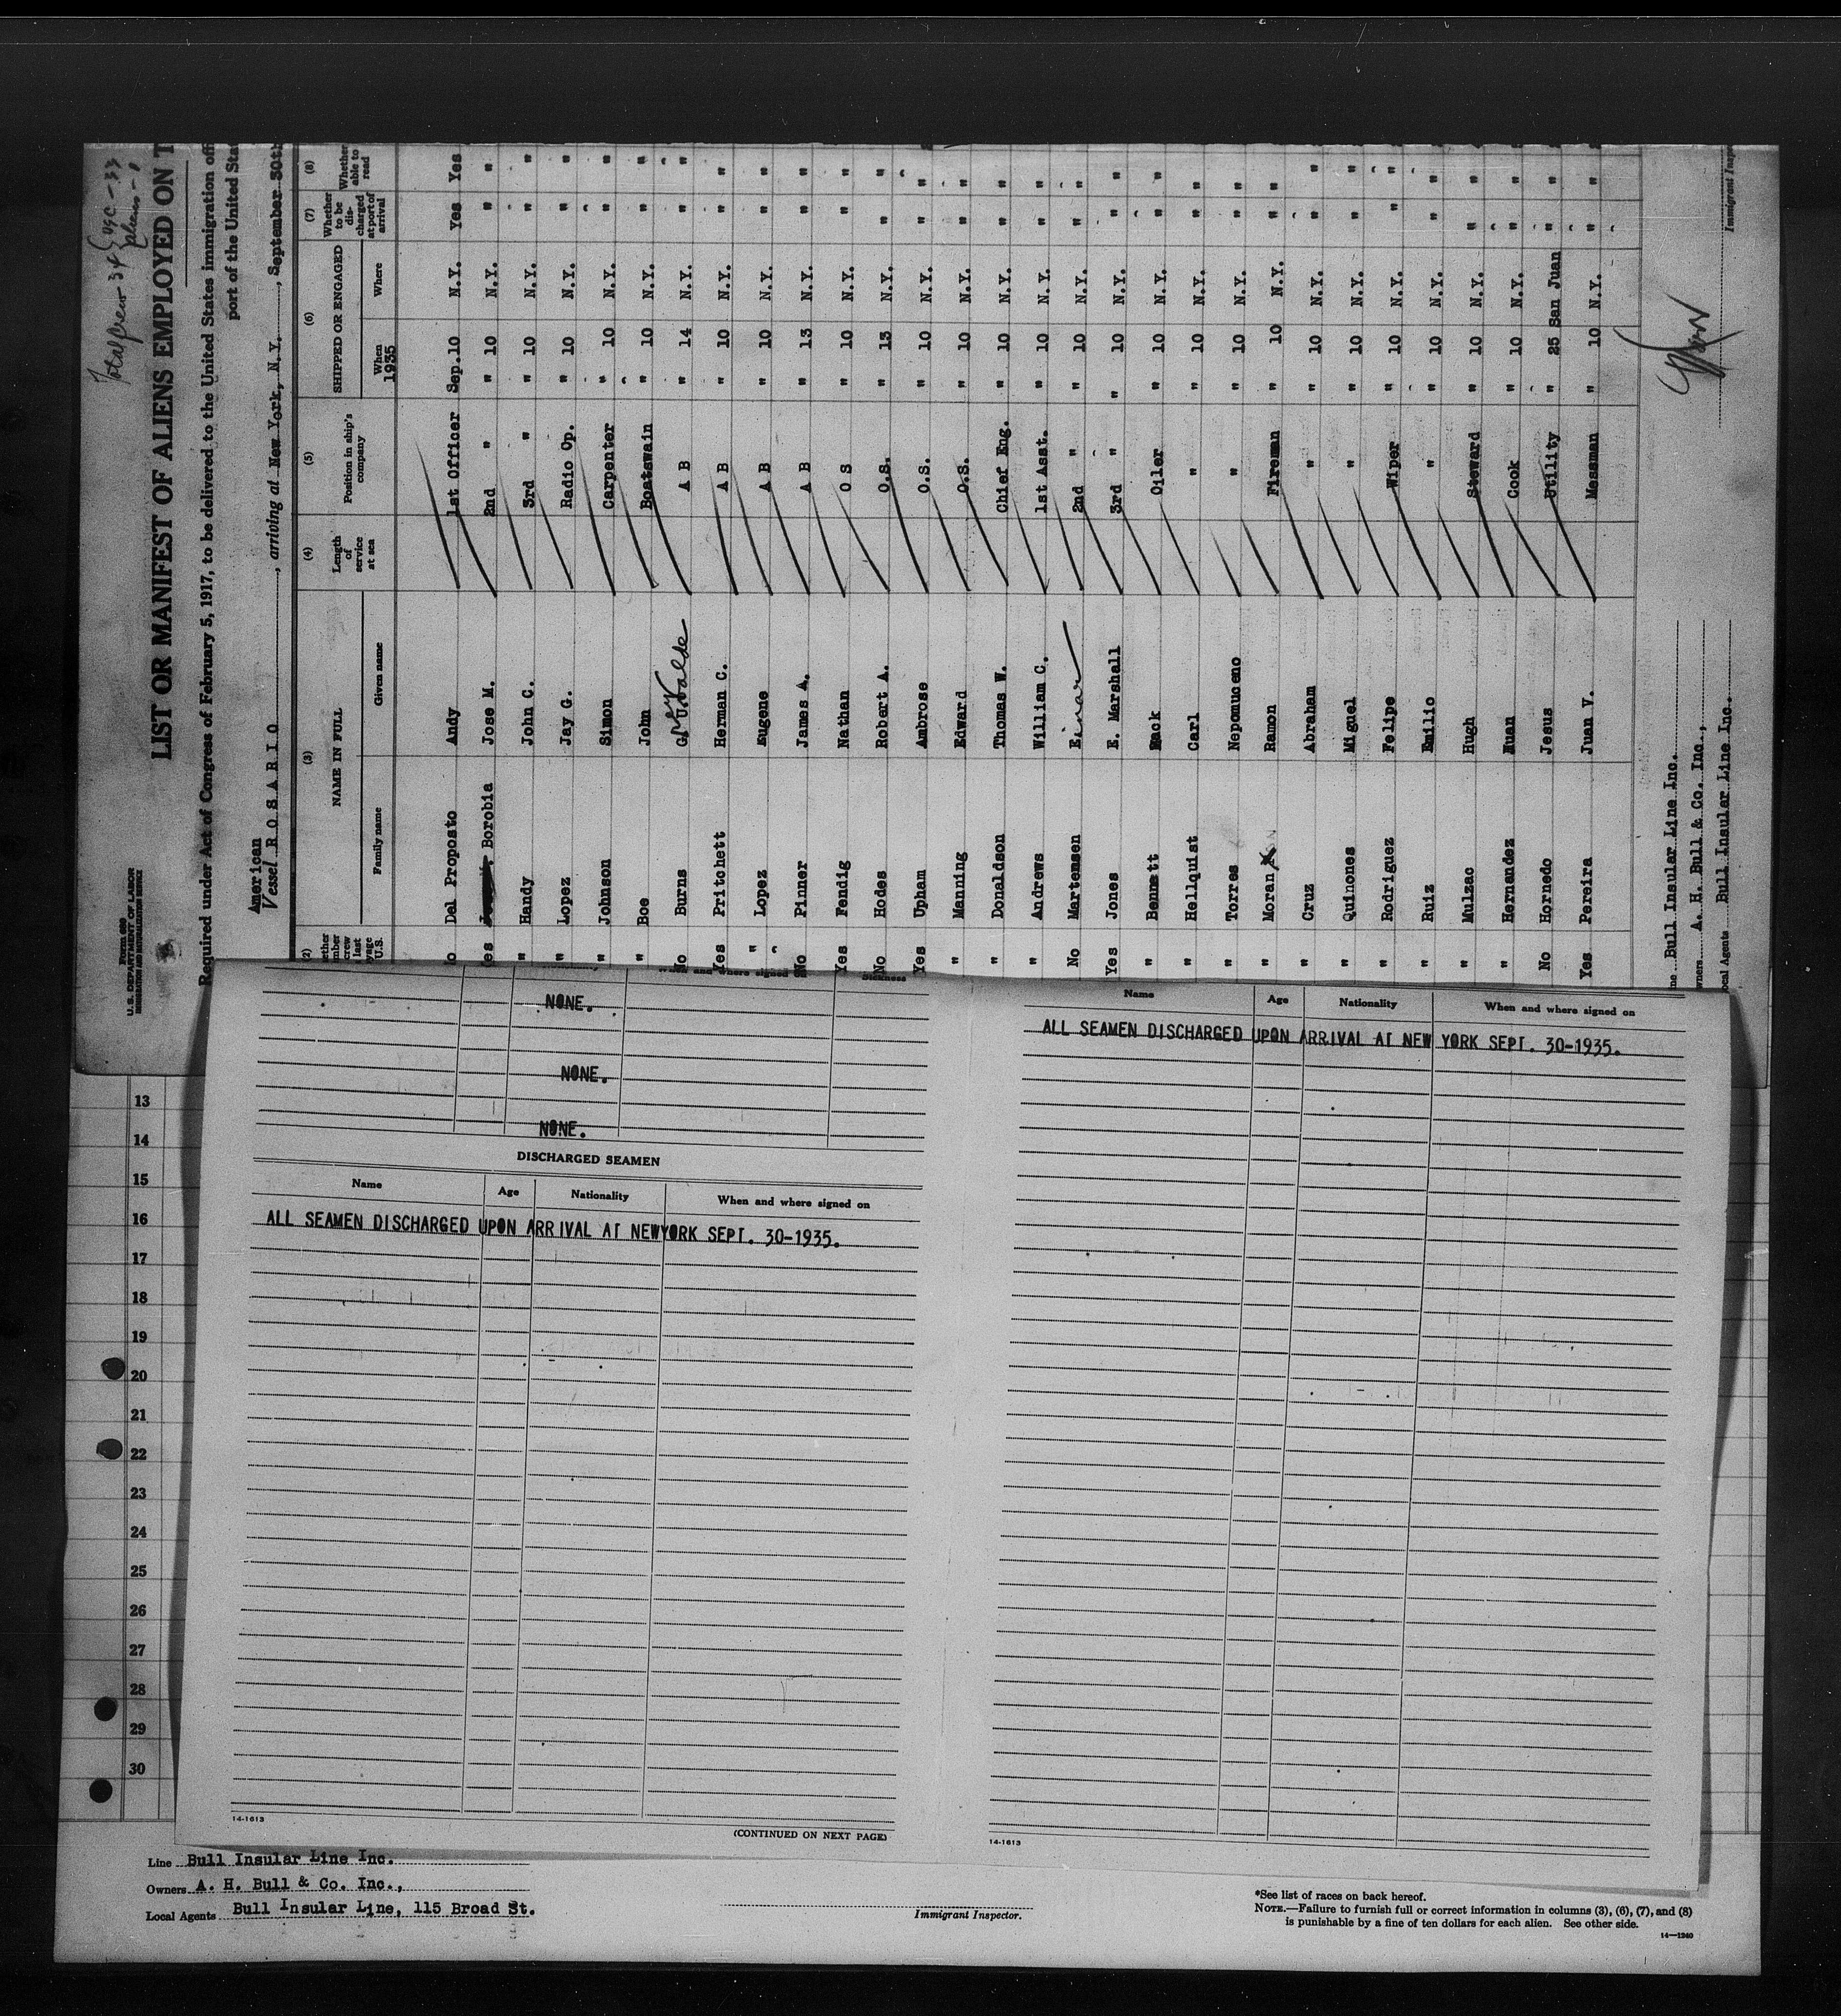 Total Crew 34 { USC - 33
Aliens - 1
Form 689
U.S. DEPARTMENT OF LABOR
IMMIGRATION AND NATURALIZATION SERVICE
LIST OR MANIFEST OF ALIENS EMPLOYED ON T
Required under Act of Congress of February 5, 1917, to be delivered to the United States immigration off
port of the United Sta
American
Vessel R O S A R I O , arriving at New York, N.Y. , September 30th
(2) (3) (4) (5) (6) (7) (8)
NAME IN FULL Length of service at sea Position in ship's company SHIPPED OR ENGAGED Whether to be discharged at port of arrival Whether able to read
Family name Given name When Where
1935
o Del Proposto Andy 1st Officer Sep. 10 N.Y. Yes Yes
es Borobia Jose M. 2nd " " 10 N.Y. " "
" Handy John C. 3rd " " 10 N.Y. " "
" Lopez Jay G. Radio Op. " 10 N.Y. " "
" Johnson Simon Carpenter " 10 N.Y. " "
" Boe John Boatswain " 10 N.Y. " "
No Burns A B " 14 N.Y. " "
Yes Pritchett Herman C. A B " 10 N.Y. " "
" Lopez Eugene A B " 10 N.Y. " "
No Pinner James A. A B " 13 N.Y. " "
Yes Fendig Nathan O S " 10 N.Y. " "
No Hodes Robert A. O.S. " 13 N.Y. " "
Yes Upham Ambrose O.S. " 10 N.Y. " "
" Manning Edward O.S. " 10 N.Y. " "
" Donaldson Thomas W. Chief Eng. " 10 N.Y. " "
" Andrews William C. 1st Asst. " 10 N.Y. " "
No Martemsen Einar 2nd " " 10 N.Y. " "
Yes Jones E. Marshall 3rd " " 10 N.Y. " "
" Bennett Mack Oiler " 10 N.Y. " "
" Hellquist Carl " " 10 N.Y. " "
" Torres Nepomuceno " " 10 N.Y. " "
" Moran Ramon Fireman " 10 N.Y. " "
" Cruz Abraham " " 10 N.Y. " "
" Quinones Miguel " " 10 N.Y. " "
" Rodriguez Felipe Wiper " 10 N.Y. " "
" Ruiz Emilio " " 10 N.Y. " "
" Mulzac Hugh Steward " 10 N.Y. " "
" Hernandez Juan Cook " 10 N.Y. " "
No Hornedo Jesus Utility " 25 San Juan " "
Yes Pereira Juan V. Messman " 10 N.Y. " "
ne Bull Insular Line Inc.
wners A. H. Bull & Co. Inc.,
ocal Agents Bull Insular Line Inc.
Immigrant Inspe
NONE.
NONE.
NONE.
DISCHARGED SEAMEN
Name Age Nationality When and where signed on
ALL SEAMEN DISCHARGED UPON ARRIVAL AT NEWYORK SEPT. 30-1935.
14-1613
(CONTINUED ON NEXT PAGE)
Name Age Nationality When and where signed on
ALL SEAMEN DISCHARGED UPON ARRIVAL AT NEW YORK SEPT. 30-1935.
14-1613
13
14
15
16
17
18
19
20
21
22
23
24
25
26
27
28
29
30
Line Bull Insular Line Inc.
Owners A. H. Bull & Co. Inc.,
Local Agents Bull Insular Line, 115 Broad St.
Immigrant Inspector.
*See list of races on back hereof.
NOTE.—Failure to furnish full or correct information in columns (3), (6), (7), and (8)
is punishable by a fine of ten dollars for each alien. See other side.
14—1240